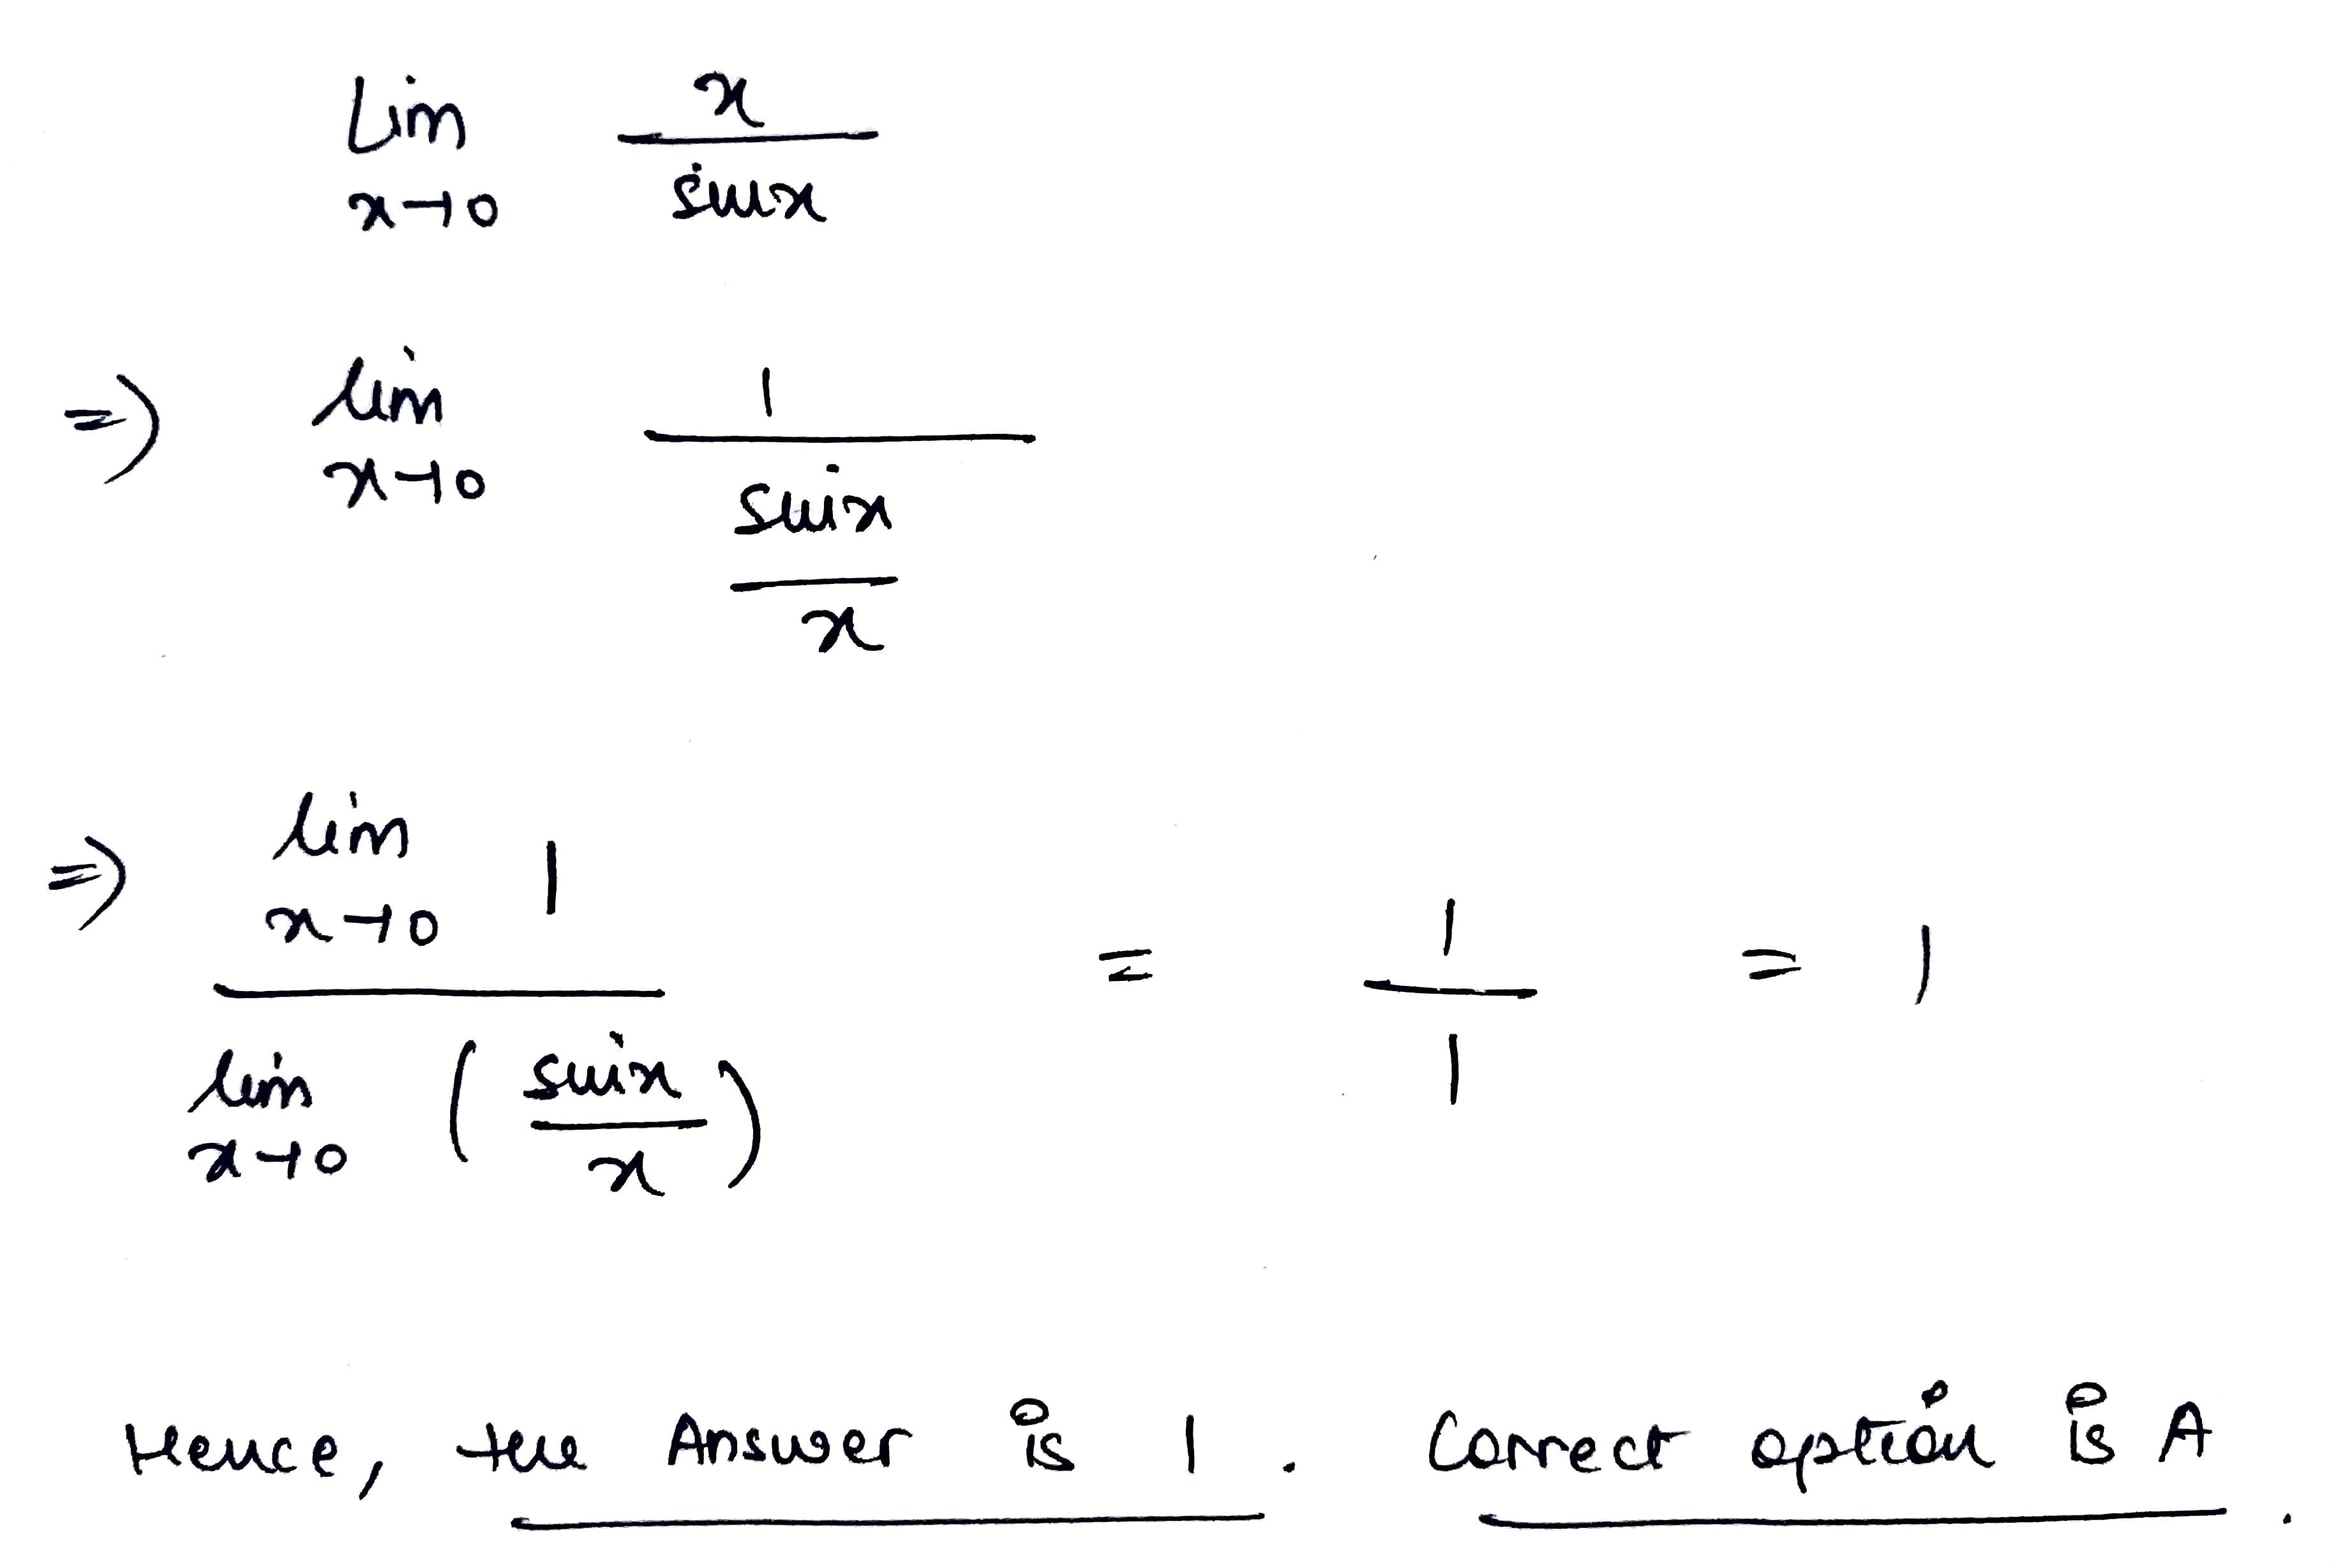 Lim x→0 x / sinx
⇒ lim x→0 1 / (sinx / x)
⇒ lim x→0 1 / lim x→0 (sinx / x) = 1 / 1 = 1
Hence, the Answer is 1. Correct option is A.